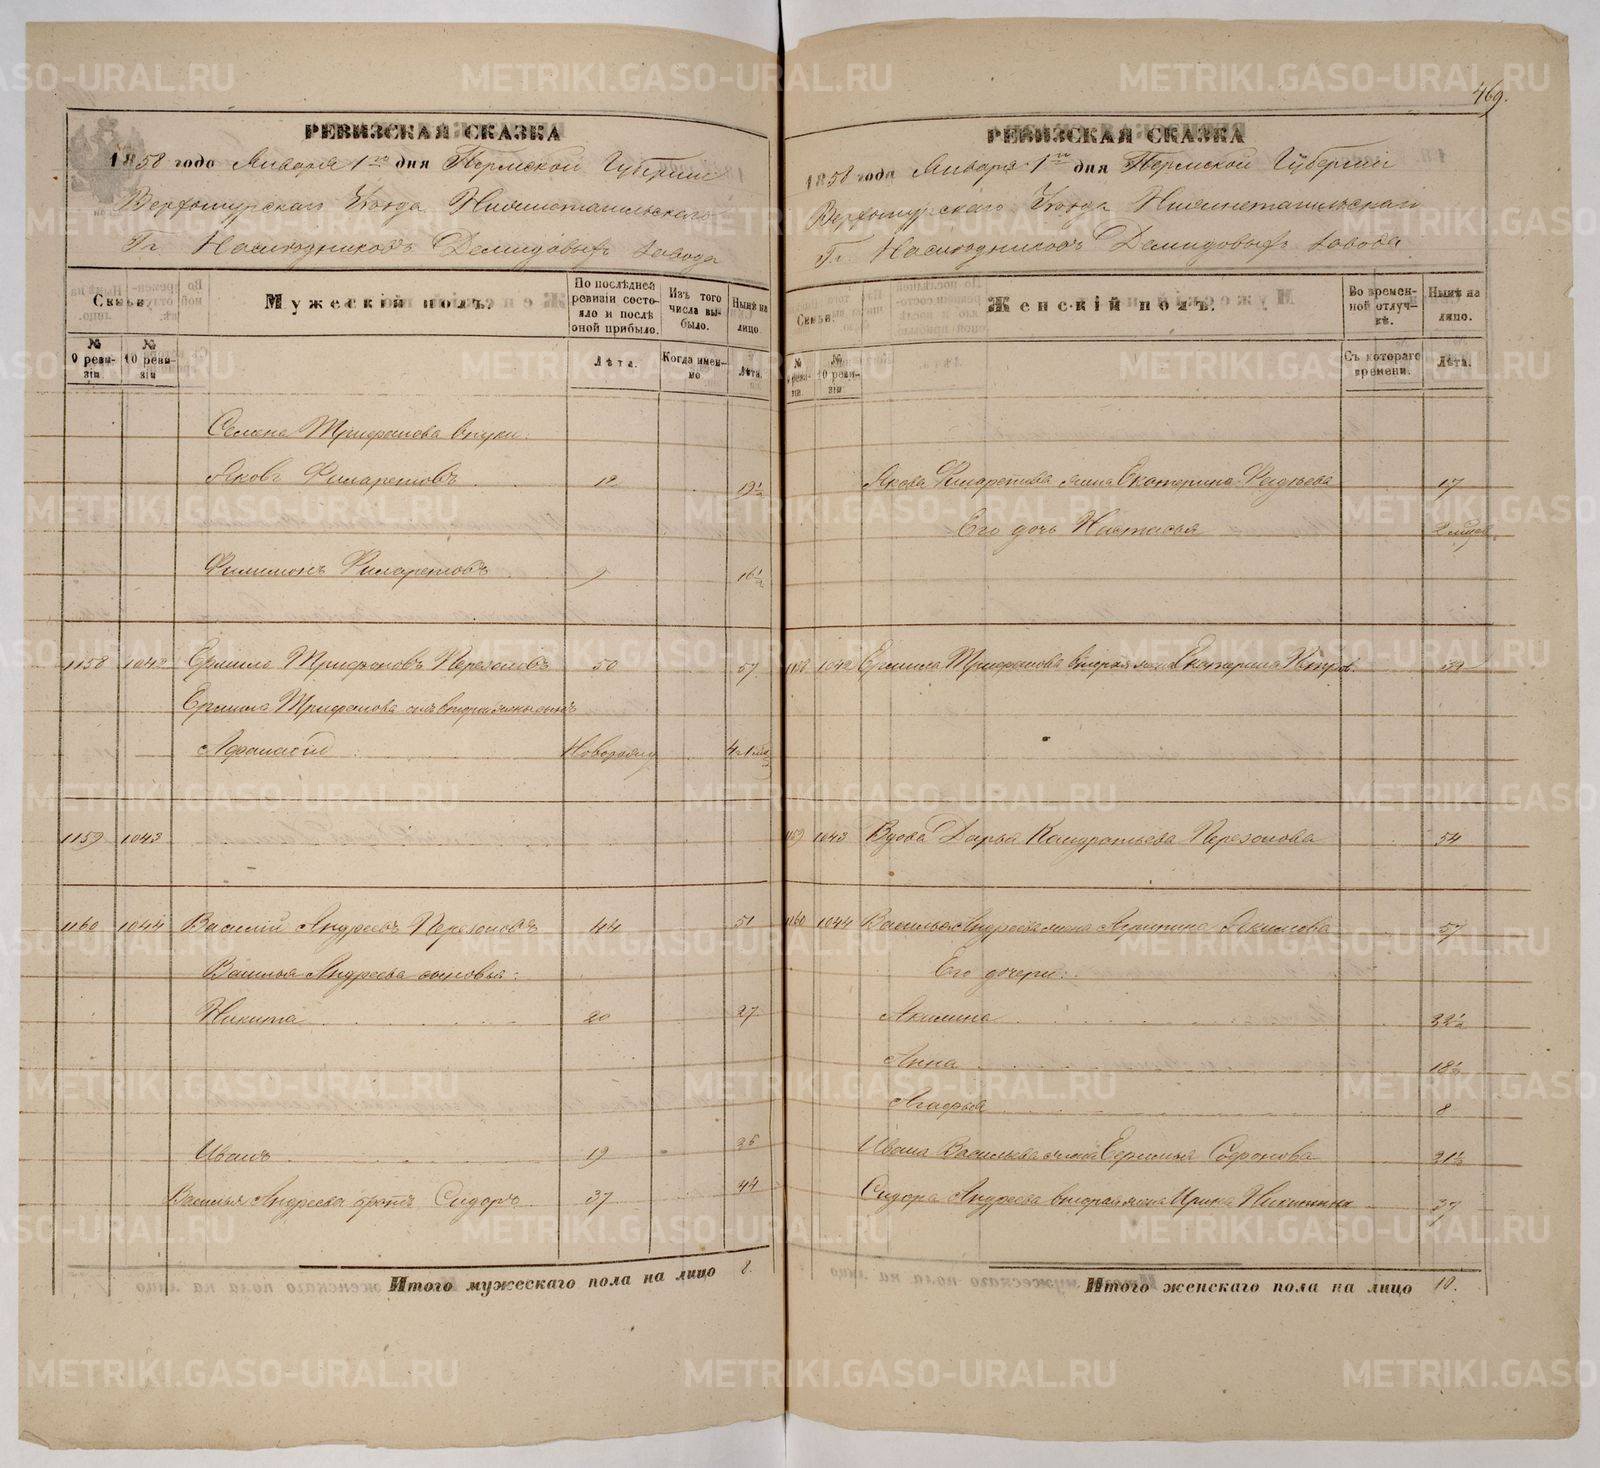 469.
РЕВИЗСКАЯ СКАЗКА
1858 года Января 1го дня Пермской Губернии
Верхотурскаго Уѣзда Нижнетагильскаго
Гг. Наслѣдниковъ Демидовыхъ завода
Семьи.
Мужескій полъ.
По послѣдней ревизіи состояло и послѣ оной прибыло.
Изъ того числа выбыло.
Нынѣ на лицо.
№ 9 ревизіи
№ 10 ревизіи
Лѣта.
Когда именно
Лѣта.
Семена Трифонова внуки:
Яковъ Филаретовъ 12 19½
Филимонъ Филаретовъ 9 16½
1158 1042 Ермила Трифоновъ Перезоловъ 50 57
Ермила Трифонова отъ второй жены сынъ
Афанасій Новорожд 4
1159 1043
1160 1044 Василій Андреевъ Перезоловъ 44 51
Василья Андреева сыновья:
Никита 20 27
Иванъ 19 26
Василья Андреева братъ Сидоръ 37 44
Итого мужескаго пола на лицо 8.
РЕВИЗСКАЯ СКАЗКА
1858 года Января 1го дня Пермской Губерніи
Верхотурскаго Уѣзда Нижнетагильскаго
Гг. Наслѣдниковъ Демидовыхъ завода
Семьи.
Женскій полъ.
Во временной отлучкѣ.
Нынѣ на лицо.
№ 9 ревизіи
№ 10 ревизіи
Съ котораго времени.
Лѣта.
Якова Филаретова жена Екатерина Фадѣева 17
Его дочь Настасья
1158 1042 Ермила Трифонова вторая жена Екатерина Петров. 39
1159 1043 Вдова Дарья Кондратьева Перезолова 54
1160 1044 Василья Андреева жена Акимова 57
Его дочери:
Акилина 22½
Анна 18½
Агафья 8
Ивана Васильева жена Софронова 21½
Сидора Андреева вторая жена Ирина Никитина 37
Итого женскаго пола на лицо 10.
METRIKI.GASO-URAL.RU